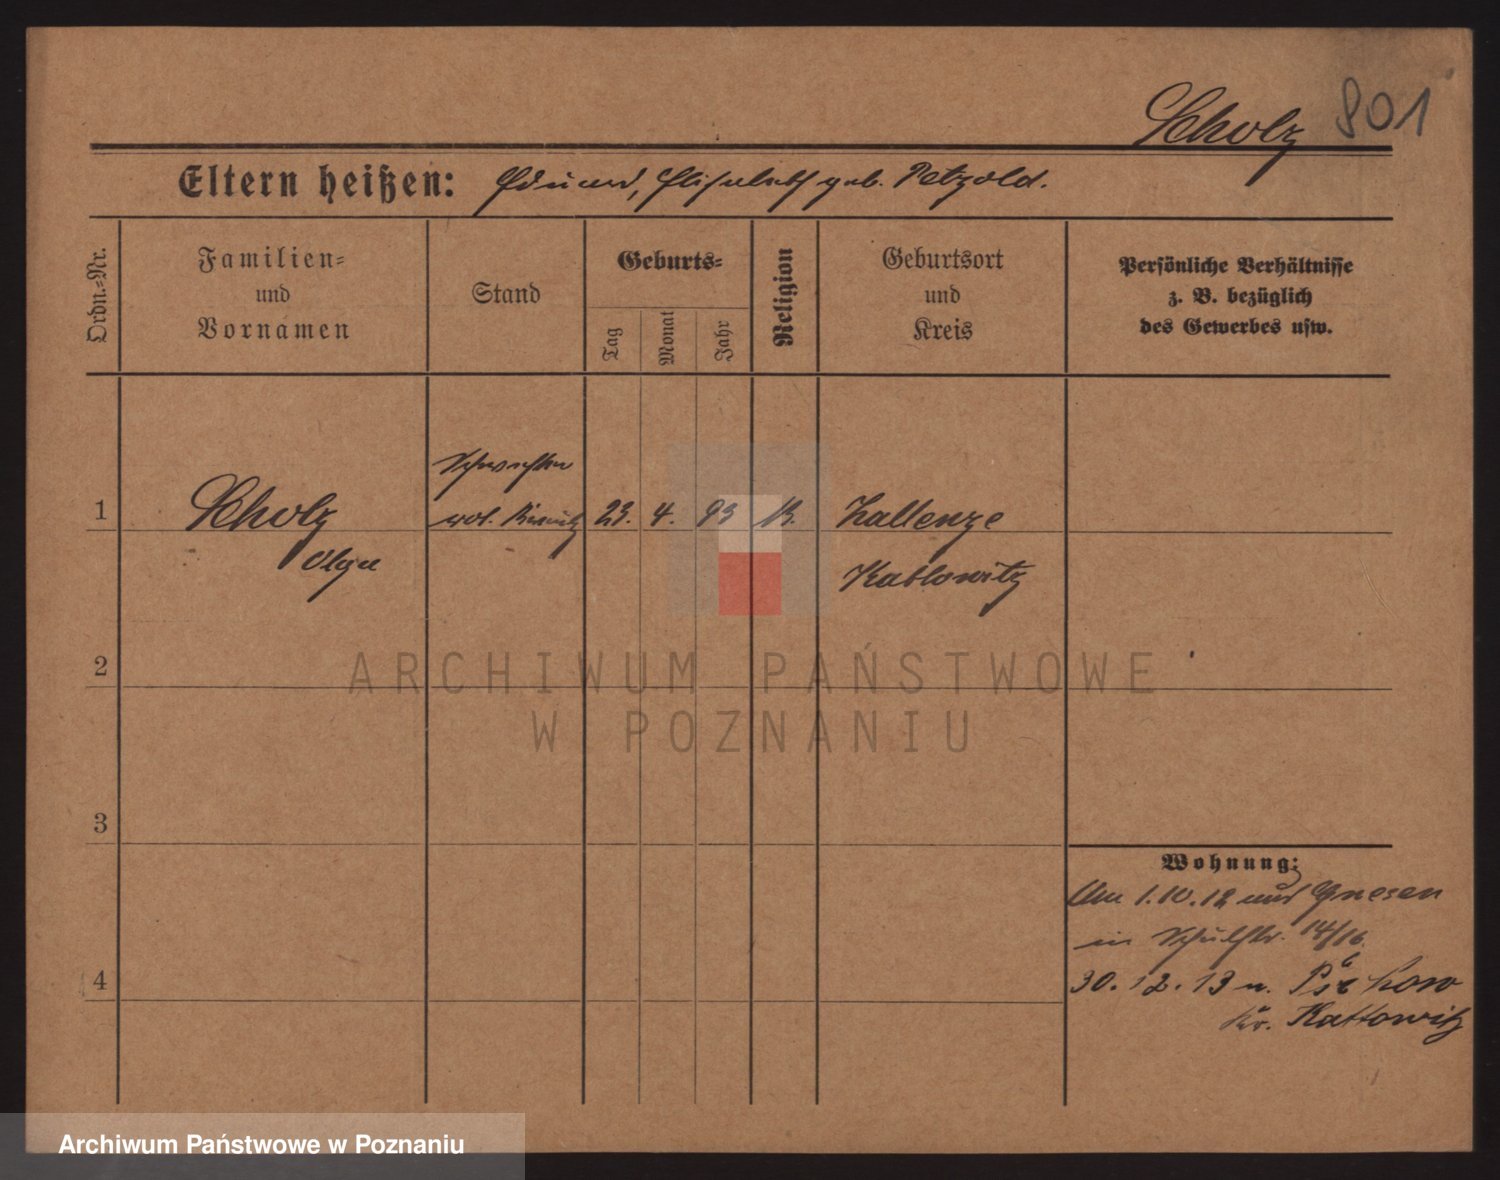 Scholz 801
Eltern heißen: Eduard, Elisabeth geb. Petzold.
Ordn.-Nr.
Familien-
und
Vornamen
Stand
Geburts-
Tag
Monat
Jahr
Religion
Geburtsort
und
Kreis
Persönliche Verhältnisse
z. B. bezüglich
des Gewerbes usw.
Schwester
1 Scholz rot. Kreuz 23. 4. 93 K. Zallenze
Olga
Kattowitz
2
3
4
Wohnung:
Am 1.10.12 aus Gnesen
in Schulstr. 14/16.
30.12.13 n.
Kr. Kattowitz
ARCHIWUM PAŃSTWOWE
W POZNANIU
Archiwum Państwowe w Poznaniu